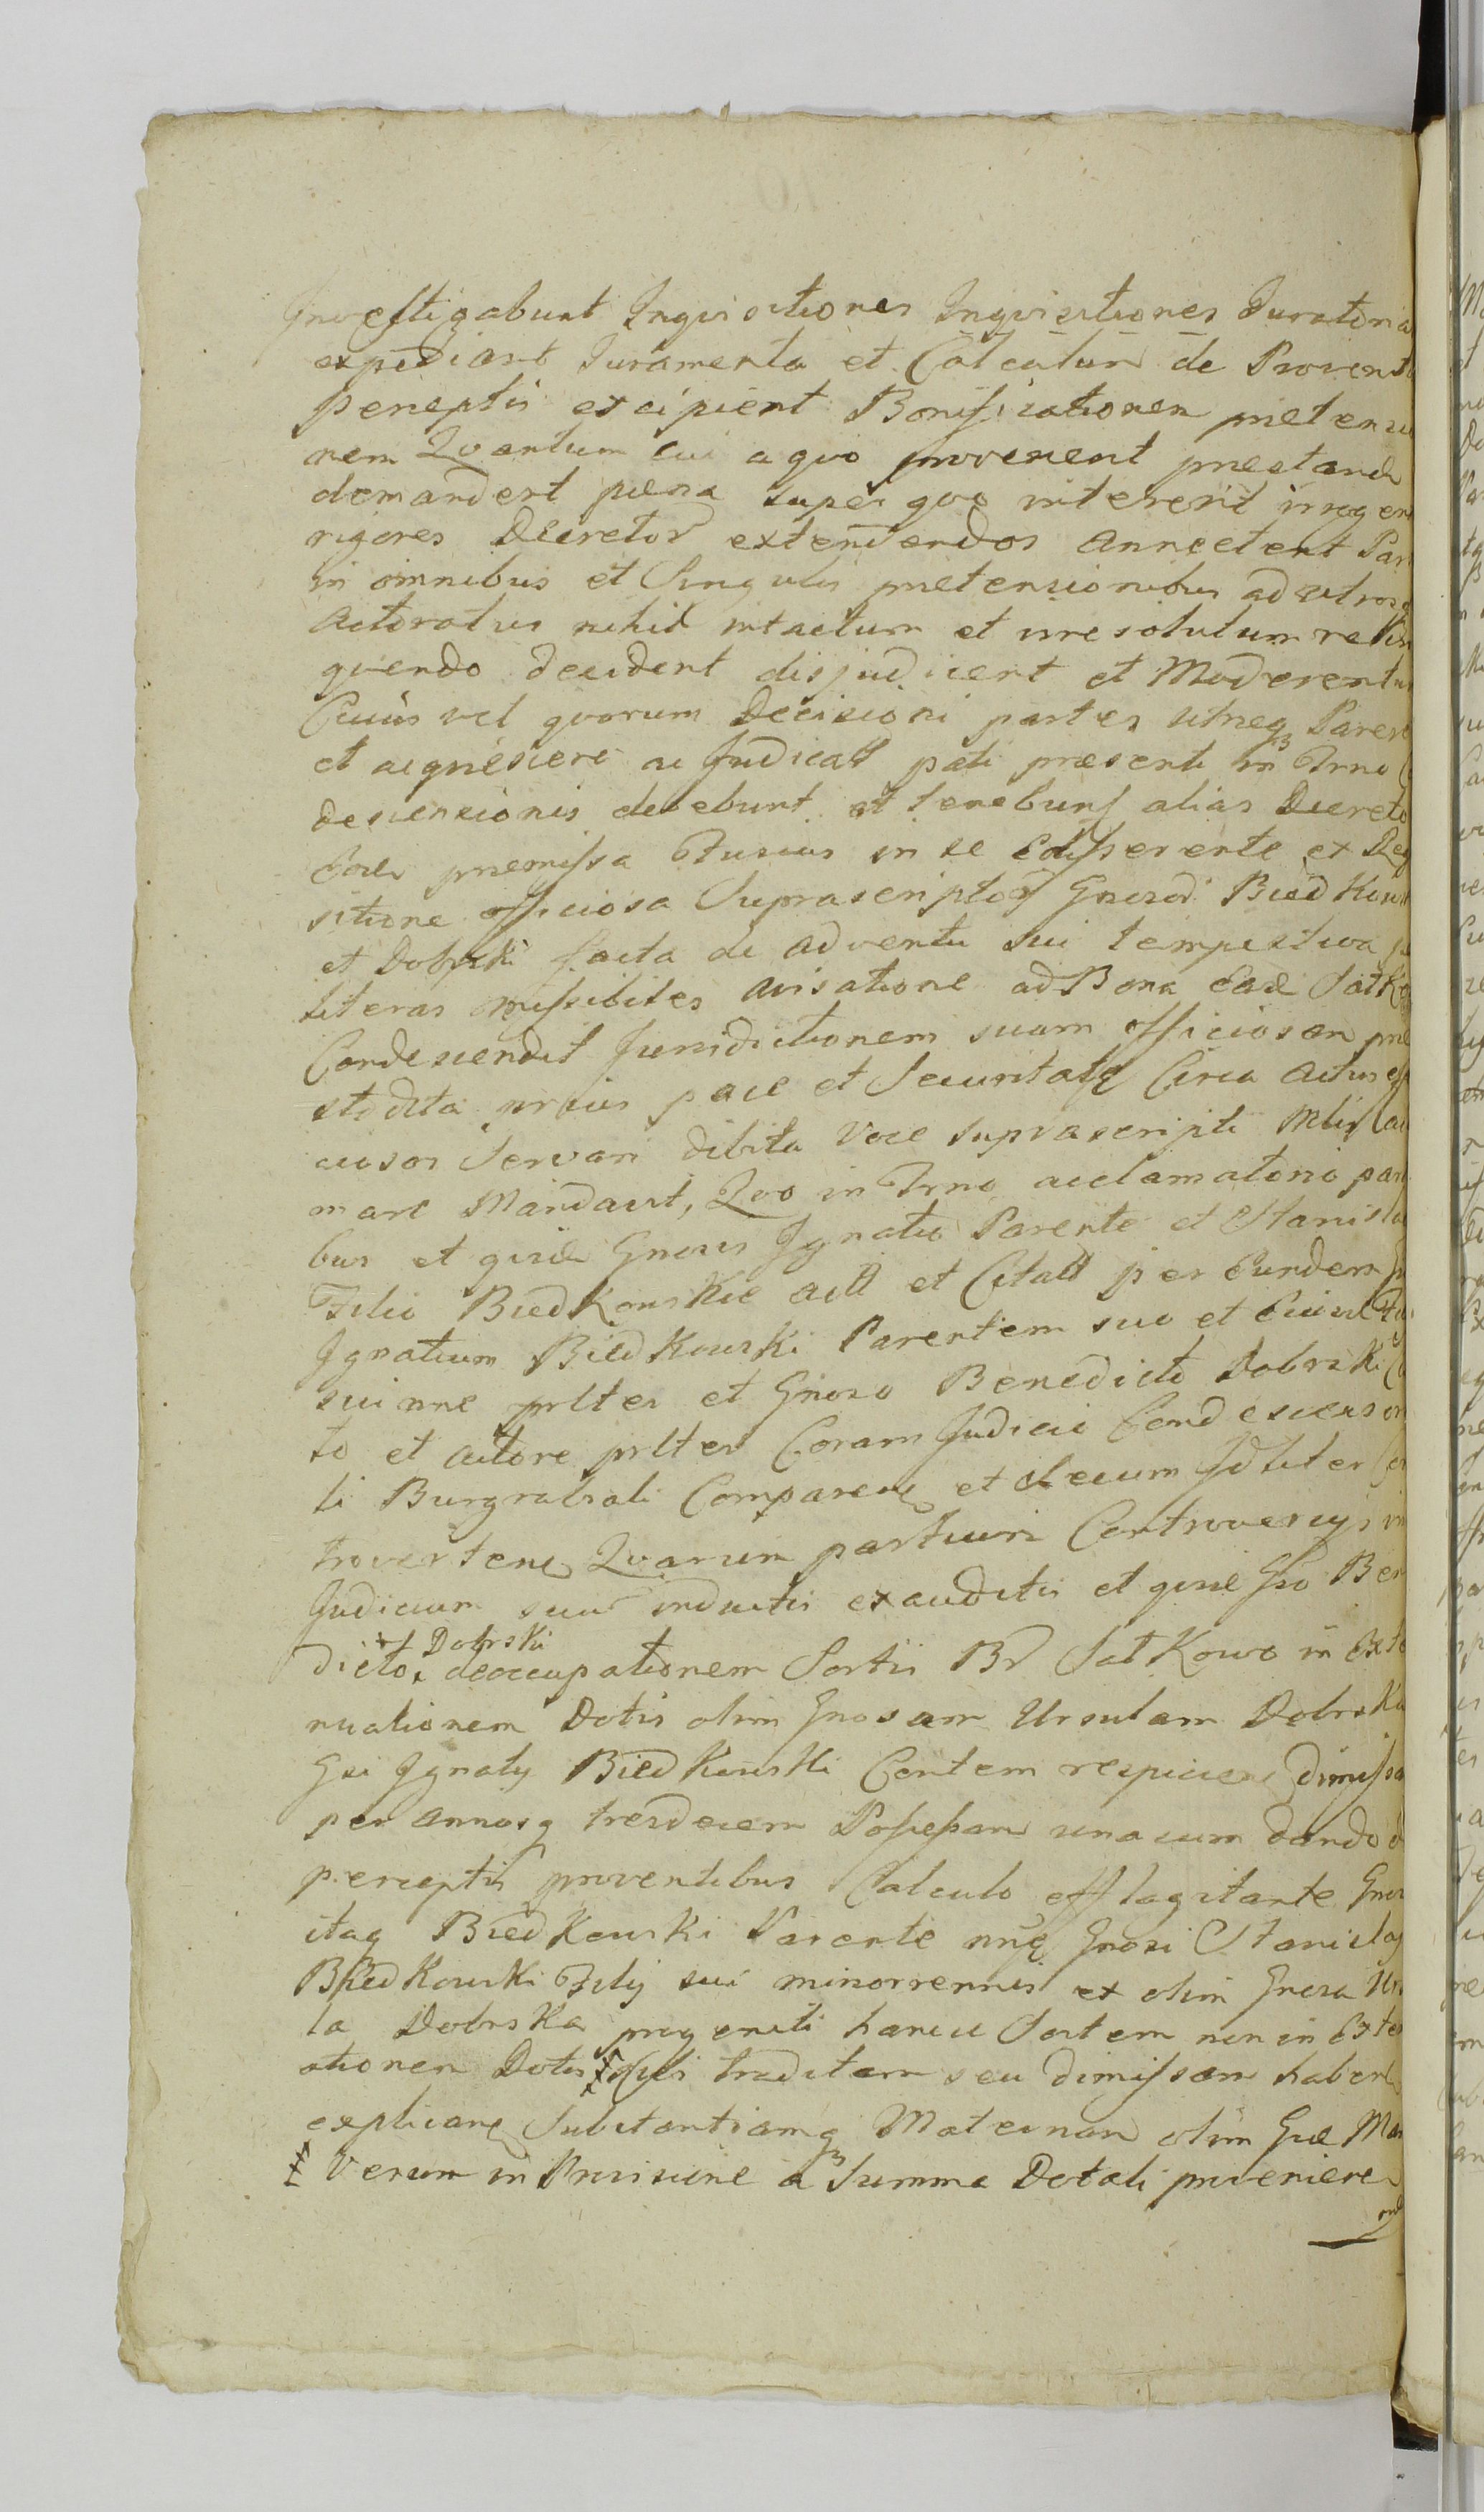 Investigabunt Inquisitiones Inqvisitiones Juratoria
expediant Juramenta et Calculum de Provent
perceptis excipient Bonificationem pretensio
nem Qvantum cui a qvo provenient prestand
demandent pœna super qvo intererit irrogen
rigores Decretor extendendos annectent Par
in omnibus et Singulis pretensionibus ad utrosq
Actoratus nihil intactum et irresolutum relin
quendo decident disjudicent et Moderentur
Cuius vel qvorum Decisioni partes utræq Parere
et acqviescere ac Judicat pati præsenti in Trno
descensionis debebunt et tenebunt alias Decreto
Eod premissa Fusius in se Edisserente ex Req
sitione officiosa Suprascriptor Gnosor Biedkows
et Dobrski facta de adventu sui tempestiva
literas missibiles avisatione ad Bona Ead Satko
Condescendit Jurisdictionem suam officiosam pre
stabilita prius pace et Securitate Circa Actus
ciosos Servari debita Voce Suprascripti Mlis
mare Mandavit, Qvo in Trno acclamatorio parti
bus et qvid Gnosis Ignatio Parente et Stanisla
Filio Biedkowskie act et Citatt per Eundem
Ignatium Biedkowski Parentem suo et Eiusd
sui nne prlter et Gnoso Benedicto Dobrski
to et actore prlter Coram Judicio Condescenson
li Burgrabiali Comparen et Secum Jdliter
troverten Qvarum partium Controversijs in
Judicium suum inductis exauditis et qvid Gso Ben
dicto Dobrski deoccupationem Sortis Br Satkowo in Exte
nuationem Dotis olim Gnosam Ursulam Dobrska
Gsi Ignaty Biedkowski Contem respicien dimissa
per annosq tresdecem Possessam una cum dando
perceptis proventibus Calculo efflagitante Gnos
itaq Biedkowski Parente nne Gnosi Stanislai
Biedkowski Filij sui minorennis ex olim Gnosa Ur
la Dobrska progeniti hancce Sortem non in Exte
ationem Dotis sibi traditam seu dimissam habere
explican Substantiamq Maternam olim Gse Ma
Verum in Provisione a Summa Dotali provenien